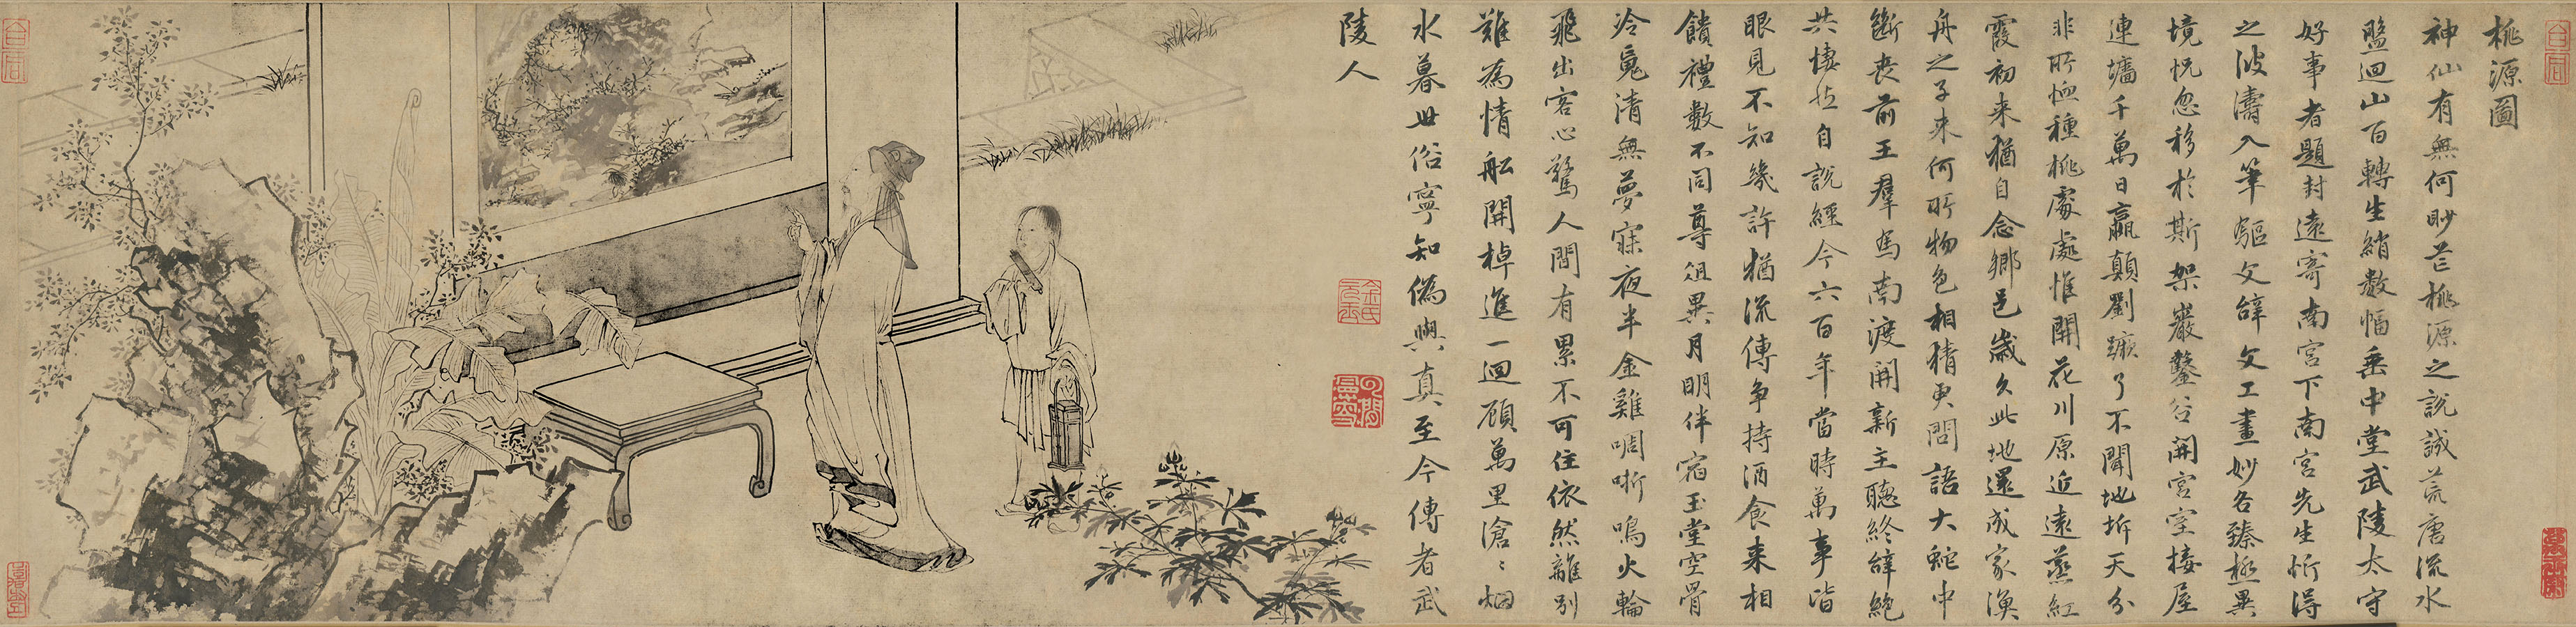 桃源圖
神仙有無何眇芒桃源之說誠荒唐流水
盤迴山百轉生綃數幅垂中堂武陵太守
好事者題封遠寄南宮下南宮先生忻得
之波濤入筆驅文辭文工畫妙各臻極異
境恍忽移於斯架巖鑿谷開宮室接屋
連墻千萬日嬴顛劉蹶了不聞地坼天分
非所恤種桃處處惟開花川原近遠蒸紅
霞初来猶自念鄉邑歲久此地還成家漁
舟之子来何所物色相猜更問語大蛇中
斷喪前王羣馬南渡開新主聽終辭絕
共悽然自說經今六百年當時萬事皆
眼見不知幾許猶流傳争持酒食来相
饋禮數不同尊俎異月明伴宿玉堂空骨
冷魂清無夢寐夜半金雞啁哳鳴火輪
飛出客心驚人間有累不可住依然離別
難為情舩開棹進一迴顧萬里滄〻烟
水暮世俗寧知偽與真至今傳者武
陵人